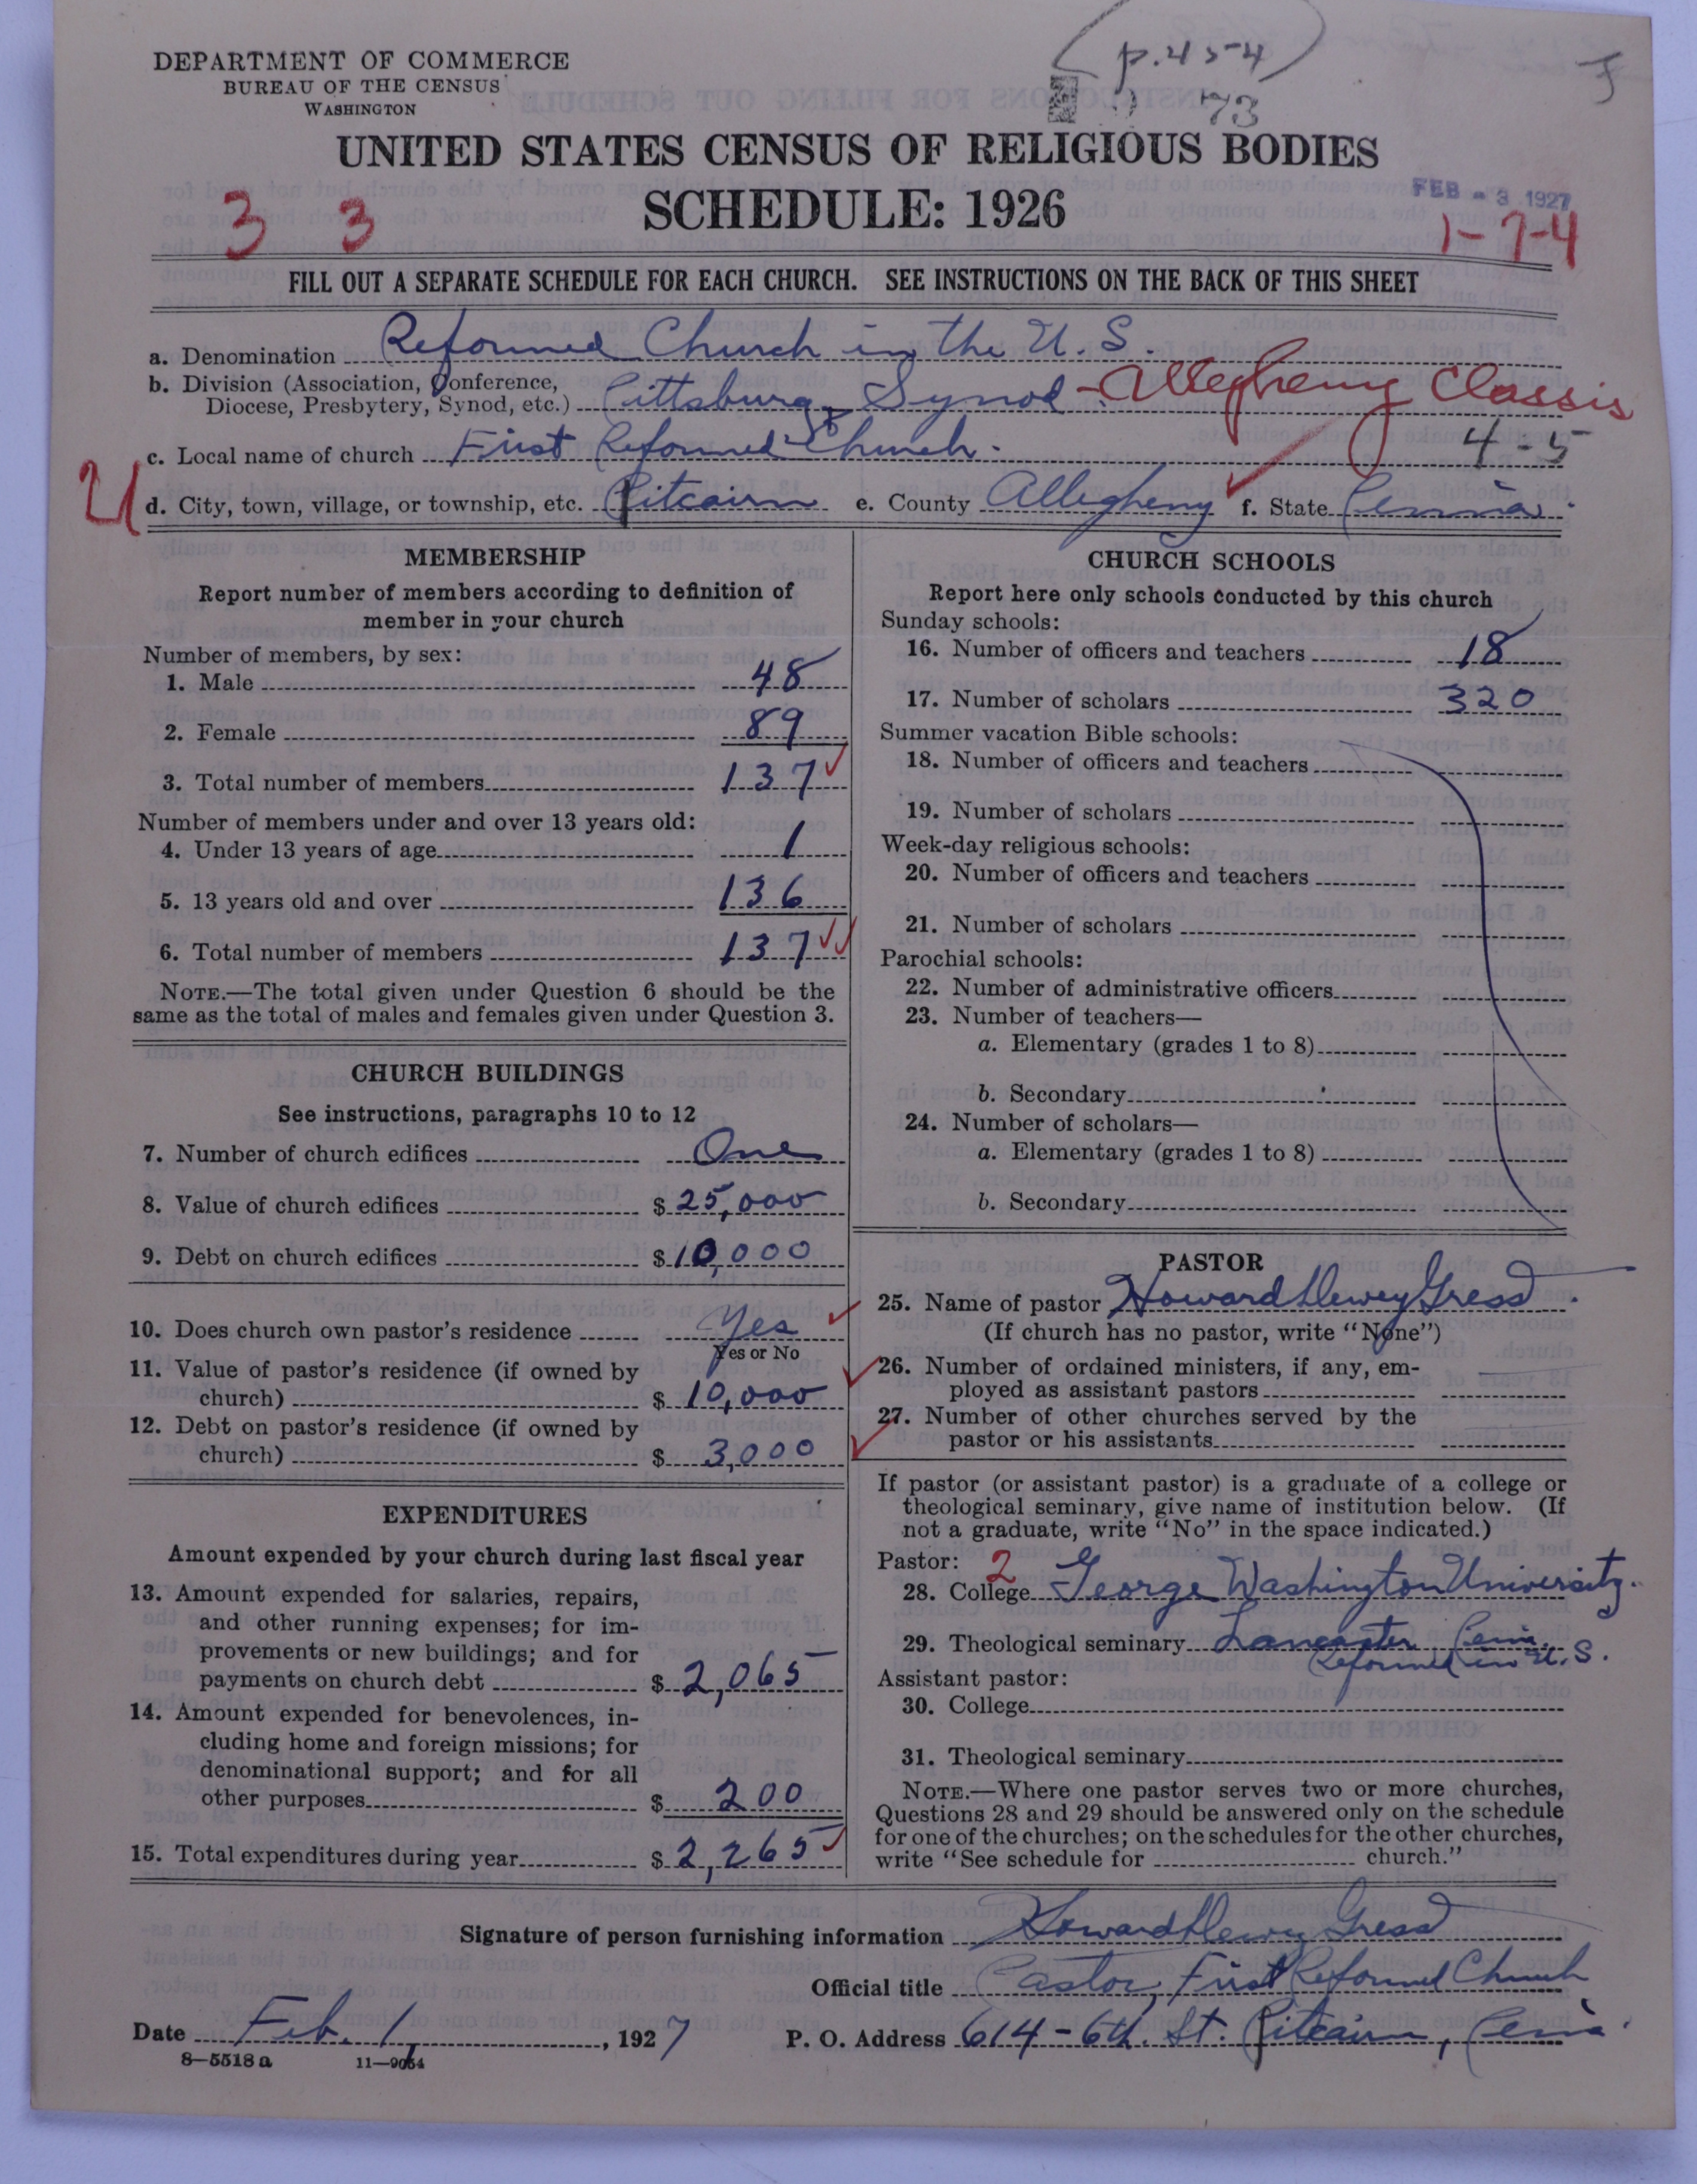 (p.454)
73
F
DEPARTMENT OF COMMERCE
BUREAU OF THE CENSUS
WASHINGTON
UNITED STATES CENSUS OF RELIGIOUS BODIES
SCHEDULE: 1926
FEB - 3 1927
3 3
1-7-4
FILL OUT A SEPARATE SCHEDULE FOR EACH CHURCH. SEE INSTRUCTIONS ON THE BACK OF THIS SHEET
a. Denomination Reformed Church in the U.S.
b. Division (Association, Conference, Diocese, Presbytery, Synod, etc.) Pittsburg Synod - Allegheny Classis
c. Local name of church First Reformed Church. 4-5
d. City, town, village, or township, etc. Pitcairn e. County Allegheny f. State Penna.
MEMBERSHIP
Report number of members according to definition of
member in your church
Number of members, by sex:
1. Male 48
2. Female 89
3. Total number of members 137
Number of members under and over 13 years old:
4. Under 13 years of age 1
5. 13 years old and over 136
6. Total number of members 137
NOTE.—The total given under Question 6 should be the
same as the total of males and females given under Question 3.
CHURCH BUILDINGS
See instructions, paragraphs 10 to 12
7. Number of church edifices One
8. Value of church edifices $ 25,000
9. Debt on church edifices $ 10,000
10. Does church own pastor's residence Yes
Yes or No
11. Value of pastor's residence (if owned by
church) $ 10,000
12. Debt on pastor's residence (if owned by
church) $ 3,000
EXPENDITURES
Amount expended by your church during last fiscal year
13. Amount expended for salaries, repairs,
and other running expenses; for im-
provements or new buildings; and for
payments on church debt $ 2,065
14. Amount expended for benevolences, in-
cluding home and foreign missions; for
denominational support; and for all
other purposes $ 200
15. Total expenditures during year $ 2,265
CHURCH SCHOOLS
Report here only schools conducted by this church
Sunday schools:
16. Number of officers and teachers 18
17. Number of scholars 320
Summer vacation Bible schools:
18. Number of officers and teachers
19. Number of scholars
Week-day religious schools:
20. Number of officers and teachers
21. Number of scholars
Parochial schools:
22. Number of administrative officers
23. Number of teachers—
a. Elementary (grades 1 to 8)
b. Secondary
24. Number of scholars—
a. Elementary (grades 1 to 8)
b. Secondary
PASTOR
25. Name of pastor Howard Dewey Gress.
(If church has no pastor, write "None")
26. Number of ordained ministers, if any, em-
ployed as assistant pastors
27. Number of other churches served by the
pastor or his assistants
If pastor (or assistant pastor) is a graduate of a college or
theological seminary, give name of institution below. (If
not a graduate, write "No" in the space indicated.)
Pastor: 2
28. College George Washington University.
29. Theological seminary Lancaster Penna.
Reformed in U.S.
Assistant pastor:
30. College
31. Theological seminary
NOTE.—Where one pastor serves two or more churches,
Questions 28 and 29 should be answered only on the schedule
for one of the churches; on the schedules for the other churches,
write "See schedule for church."
Signature of person furnishing information Howard Dewey Gress
Official title Pastor, First Reformed Church
Date Feb. 1, 1927 P. O. Address 614-6th. St. Pitcairn, Penna.
8—5518 a 11—9054